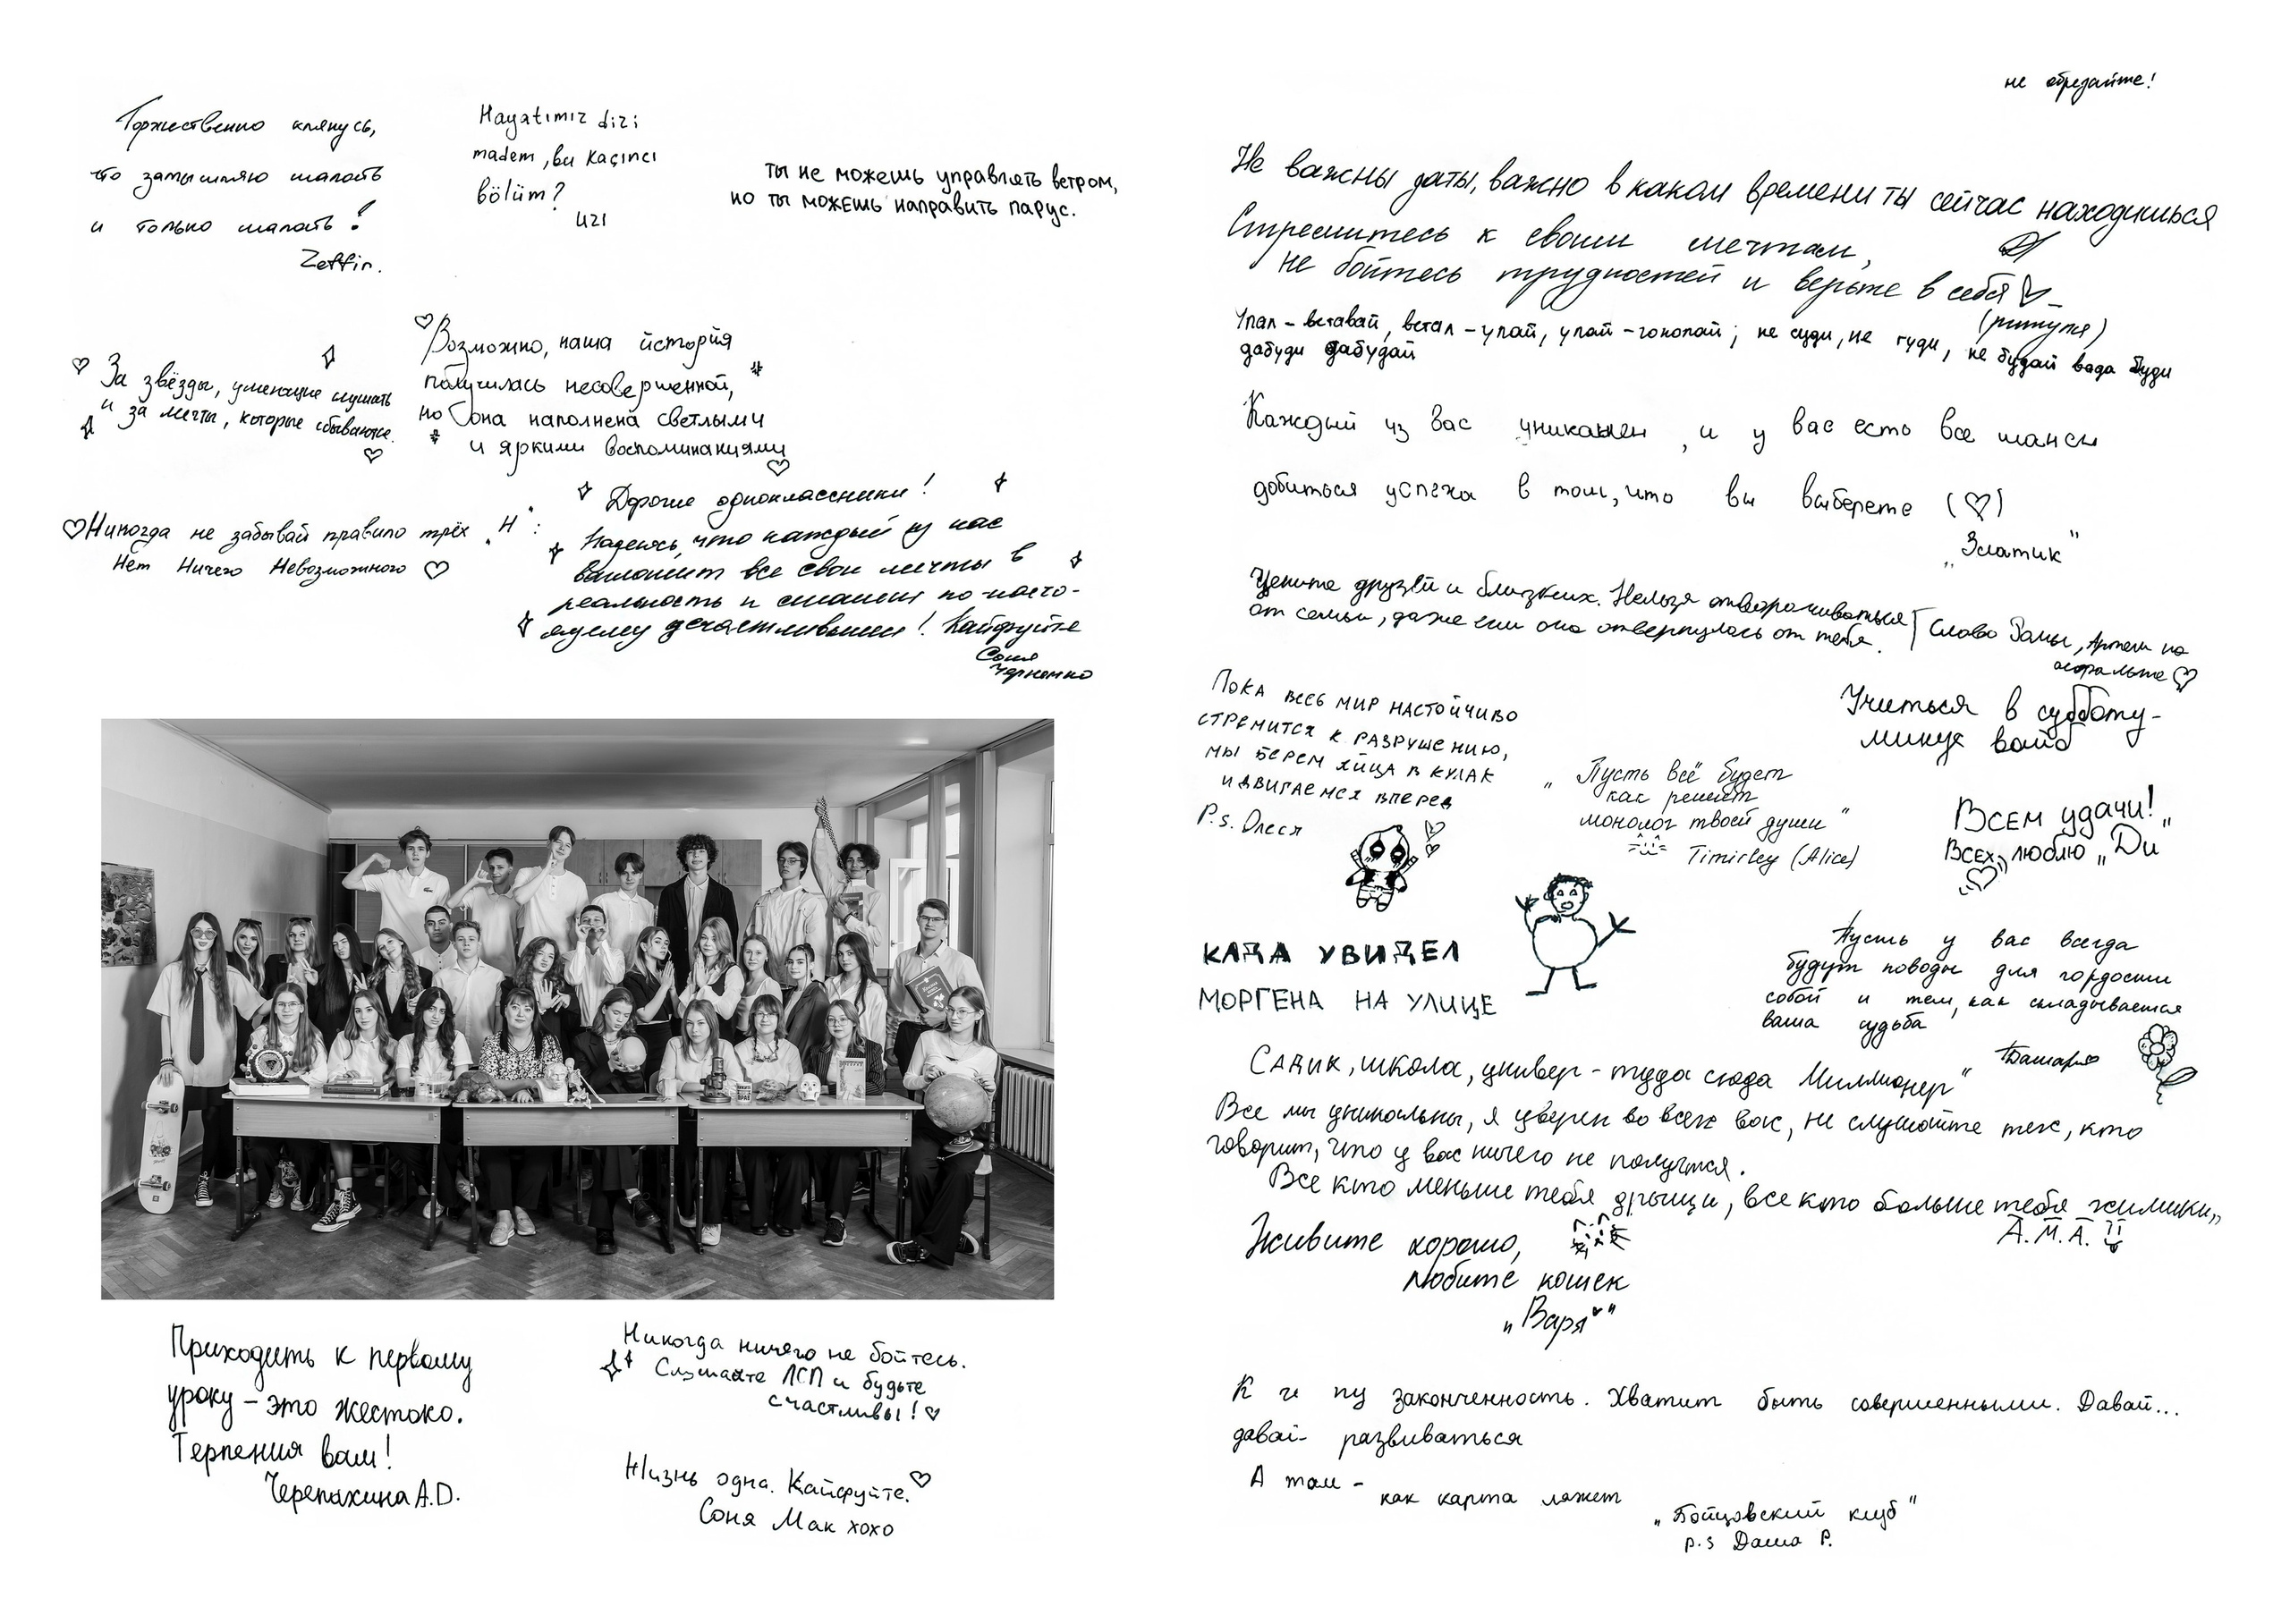 Торжественно клянусь,
что замышляю шалость
и только шалость!
Zeffir.
Hayatımız dizi
madem, bu kaçıncı
bölüm?
ты не можешь управлять ветром,
но ты можешь направить парус.
За звёзды, умеющие слушать
и за мечты, которые сбываются.
Возможно, наша история
получилась несовершенной,
но она наполнена светлыми
и яркими воспоминаниями
Никогда не забывай правило трёх „Н":
Нет Ничего Невозможного
Дорогие одноклассники!
Надеюсь, что каждый из нас
воплотит все свои мечты в
реальность и станет по-насто-
ящему счастливым! Кайфуйте
Соня
Черненко
Приходить к первому
уроку – это жестоко.
Терпения вам!
Черепахина А.D.
Никогда ничего не бойтесь.
Слушайте ЛСП и будьте
счастливы!
Жизнь одна. Кайфуйте.
Соня Мак хохо
не обрезайте!
Не важны даты, важно в каком времени ты сейчас находишься
Стремитесь к своим мечтам,
не бойтесь трудностей и верьте в себя
Упал – вставай, встал – упай, упай – гокопай; не суди, не гуди, не будай вада буди
дабуди дабудай
Каждый из вас уникален, и у вас есть все шансы
добиться успеха в том, что вы выберете (♡)
„Златик"
Цените друзей и близких. Нельзя отворачиваться
от семьи, даже если она отвернулась от тебя.
Слово
Пока весь мир настойчиво
стремится к разрушению,
мы берем яйца в кулак
и двигаемся вперед
P.s. Олеся
Учиться в субботу –
минус вайб
„Пусть всё будет
как решит
монолог твоей души"
(Alice)
Всем удачи!
Всех люблю „Ди"
КАДА УВИДЕЛ
МОРГЕНА НА УЛИЦЕ
Пусть у вас всегда
будут поводы для гордости
собой и тем, как складывается
ваша судьба
Садик, школа, универ – туда сюда Миллионер"
Все мы уникальны, я уверен во всех вас, не слушайте тех, кто
говорит, что у вас ничего не получится.
Все кто меньше тебя дрыщи, все кто больше тебя химики„
А.М.А.
Живите хорошо,
любите кошек
„Варя"
К ч пу законченность. Хватит быть совершенными. Давай...
давай- развиваться
А там –
как карта ляжет
„Бойцовский клуб"
p.s Даша Р.